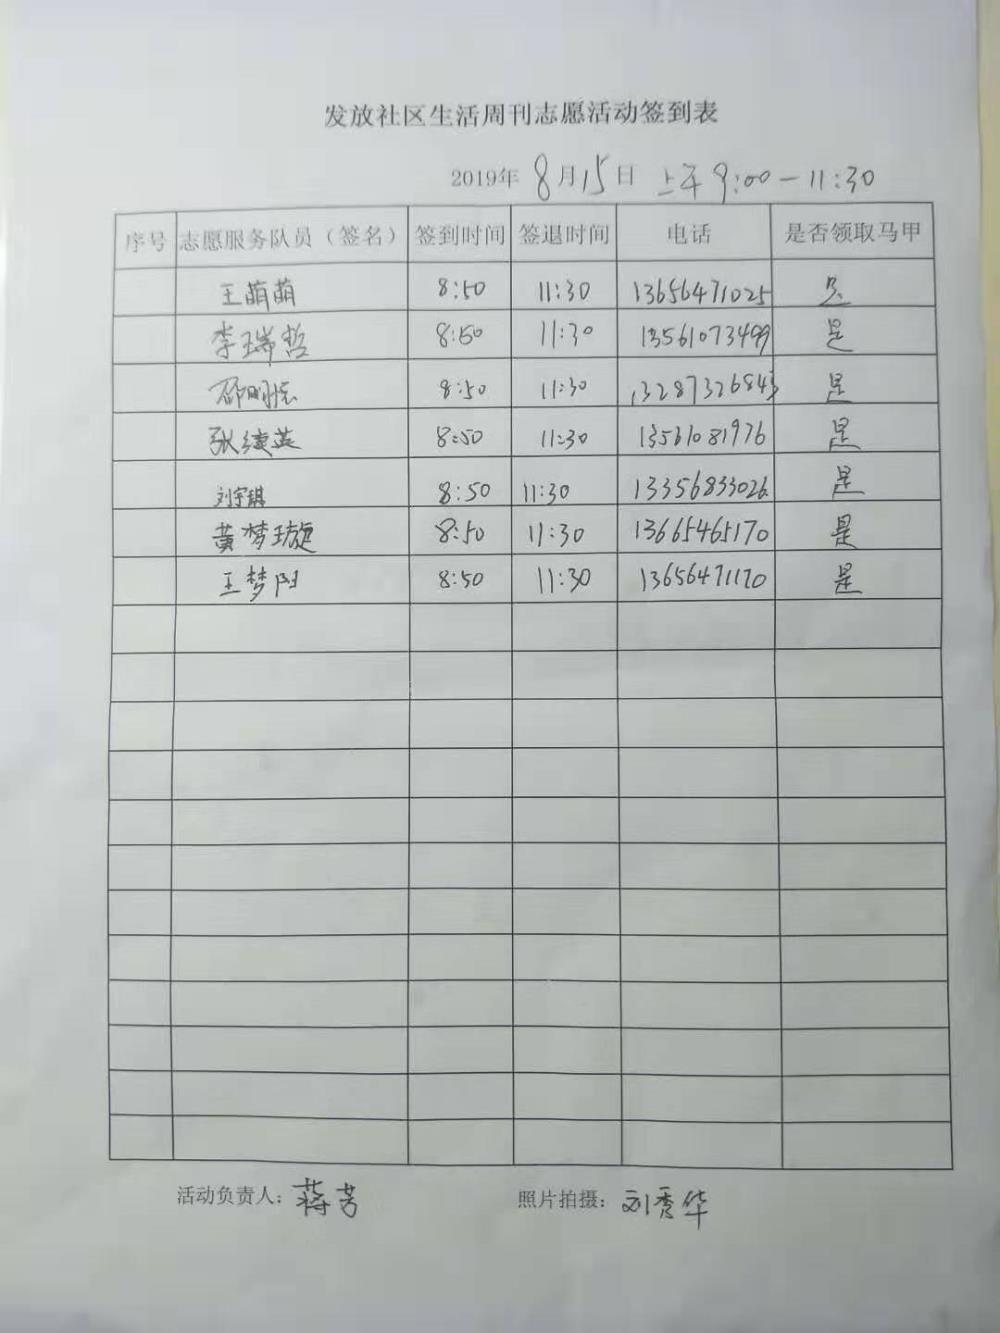 发放社区生活周刊志愿活动签到表
2019年 8月15日 上午 9:00-11:30
序号 志愿服务队员（签名） 签到时间 签退时间 电话 是否领取马甲
王萌萌 8:50 11:30 13656471025 是
李瑞哲 8:50 11:30 13561073499 是
8:50 11:30 是
张继英 8:50 11:30 13561081976 是
刘宇琪 8:50 11:30 13356833026 是
黄梦璇 8:50 11:30 13665465170 是
王梦阳 8:50 11:30 13656471170 是
活动负责人：蒋芳 照片拍摄：刘秀华